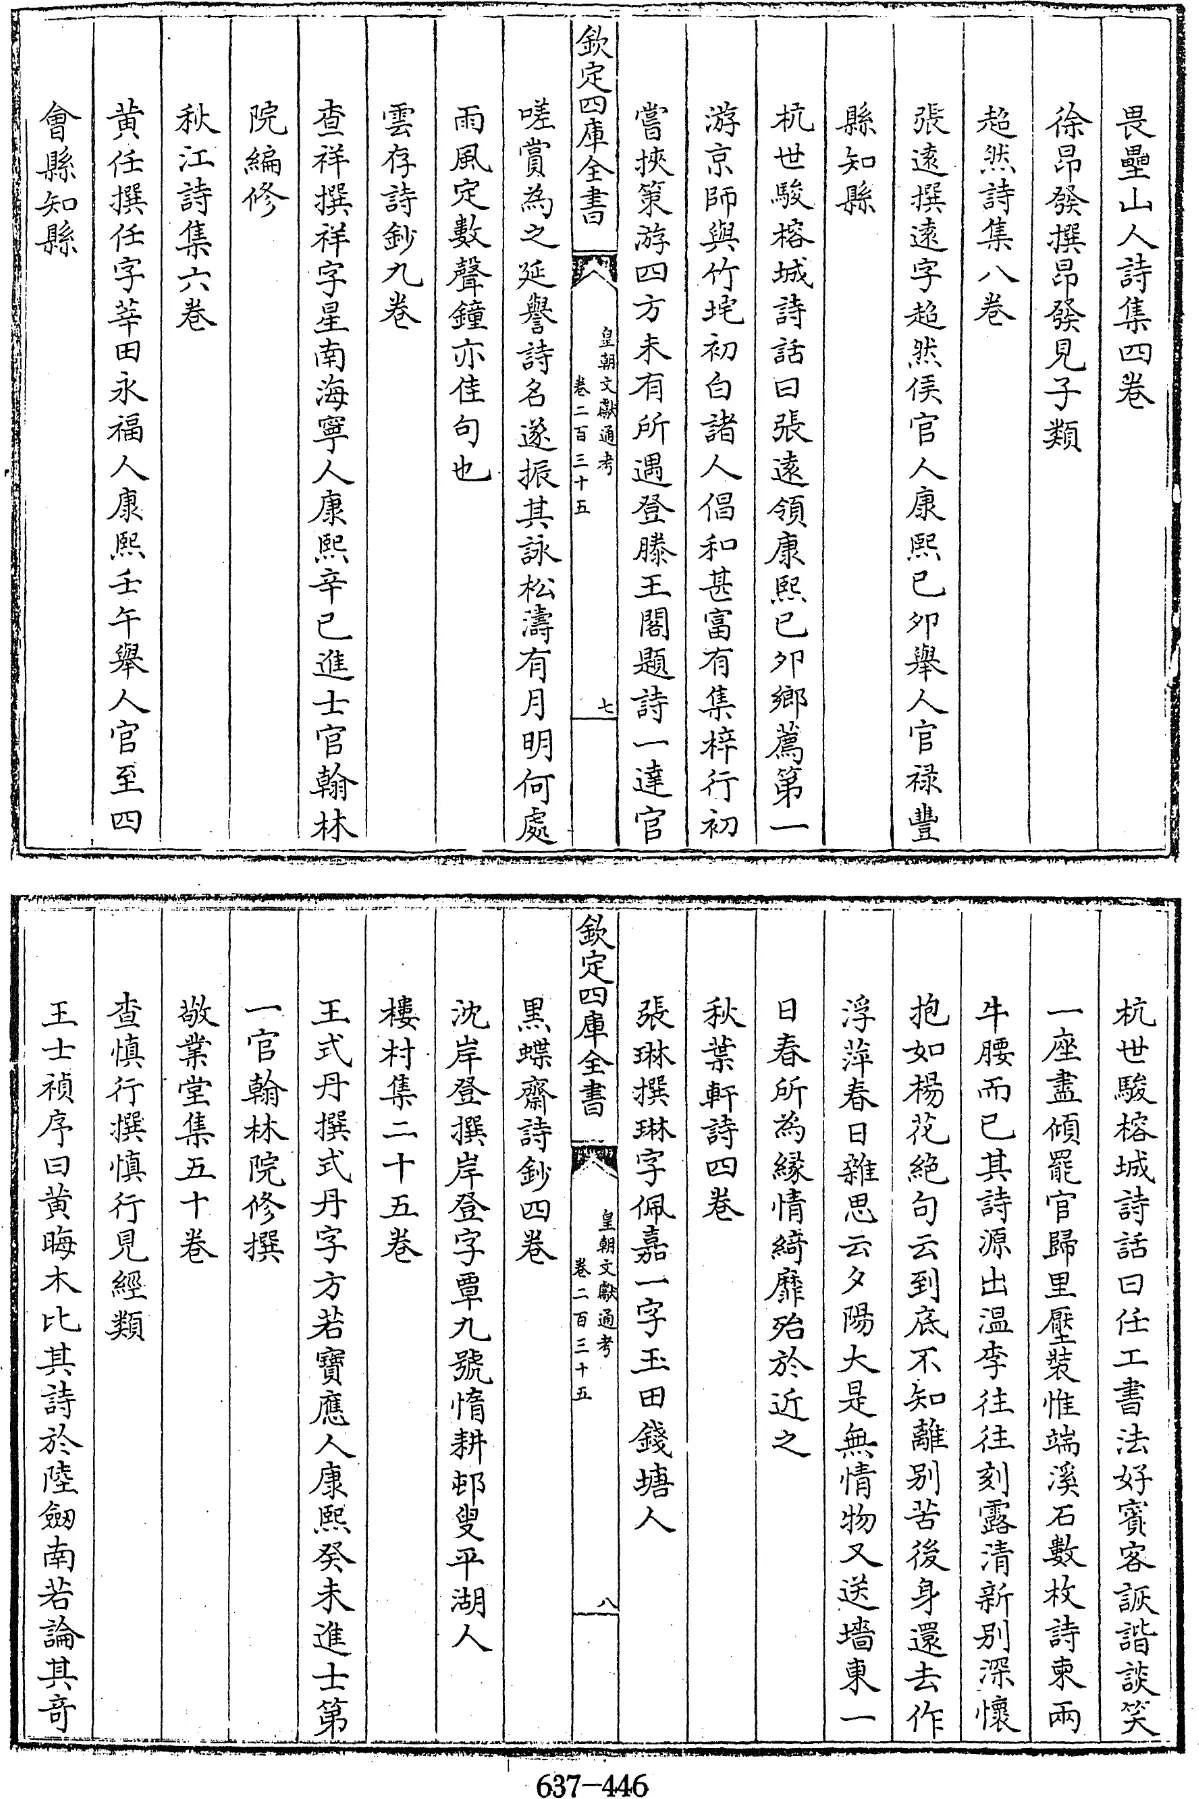 畏壘山人詩集四卷
徐昂發撰昂發見子類
超然詩集八卷
張逺撰逺字超然侯官人康熙己卯舉人官禄豐
縣知縣
杭世駿榕城詩話曰張逺領康熙己卯鄉薦第一
游京師與竹垞初白諸人倡和甚富有集梓行初
嘗挾策游四方未有所遇登滕王閣題詩一達官
欽定四庫全書
皇朝文獻通考
卷二百三十五
七
嗟賞為之延譽詩名遂振其詠松濤有月明何處
雨風定數聲鐘亦佳句也
雲存詩鈔九卷
查祥撰祥字星南海寧人康熙辛巳進士官翰林
院編修
秋江詩集六卷
黄任撰任字莘田永福人康熙壬午舉人官至四
會縣知縣
杭世駿榕城詩話曰任工書法好賓客詼諧談笑
一座盡傾罷官歸里壓裝惟端溪石數枚詩束兩
牛腰而已其詩源出温李往往刻露清新别深懷
抱如楊花絶句云到底不知離别苦後身還去作
浮萍春日雜思云夕陽大是無情物又送墻東一
日春所為縁情綺靡殆於近之
秋葉軒詩四卷
張琳撰琳字佩嘉一字玉田錢塘人
欽定四庫全書
皇朝文獻通考
卷二百三十五
八
黒蝶齋詩鈔四卷
沈岸登撰岸登字覃九號惰耕邨叟平湖人
樓村集二十五卷
王式丹撰式丹字方若寶應人康熙癸未進士第
一官翰林院修撰
敬業堂集五十卷
查慎行撰慎行見經類
王士禎序曰黄晦木比其詩於陸劔南若論其奇
637-446